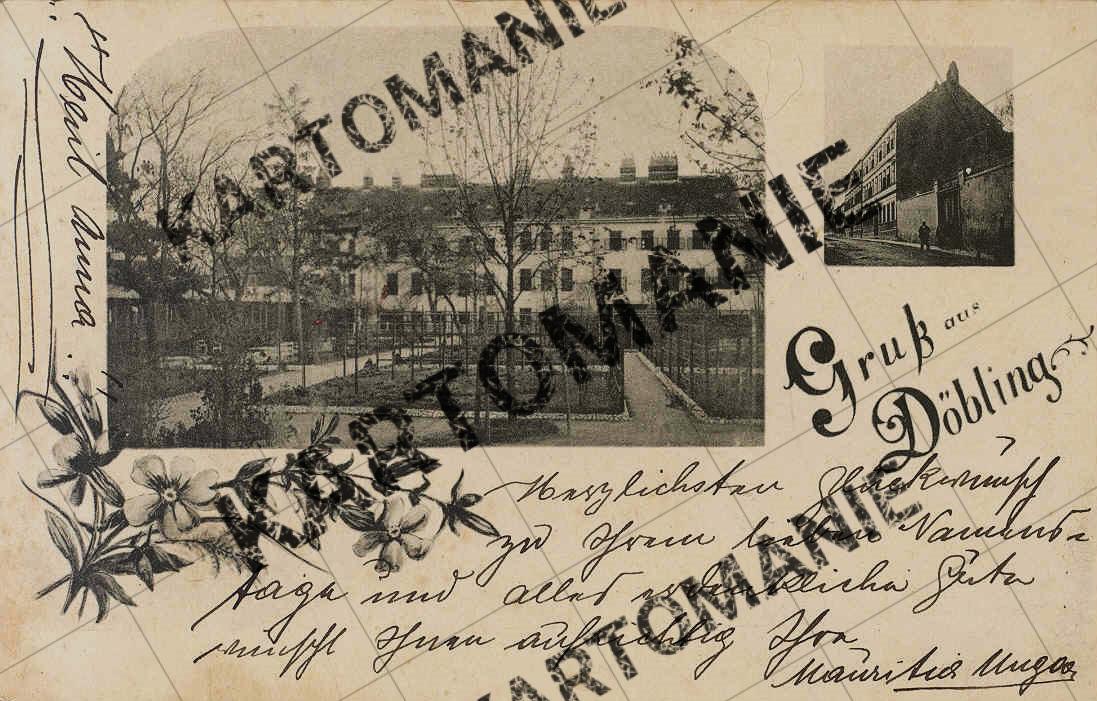 Heil Anna!
Gruß aus
Döbling
Herzlichsten Glückwunsch
zu Ihrem lieben Namens-
tage und alles erdenkliche Gute
wünscht Ihnen aufrichtig Ihre
Mauritia Ungar
KARTOMANIE
KARTOMANIE
KARTOMANIE
KARTOMANIE